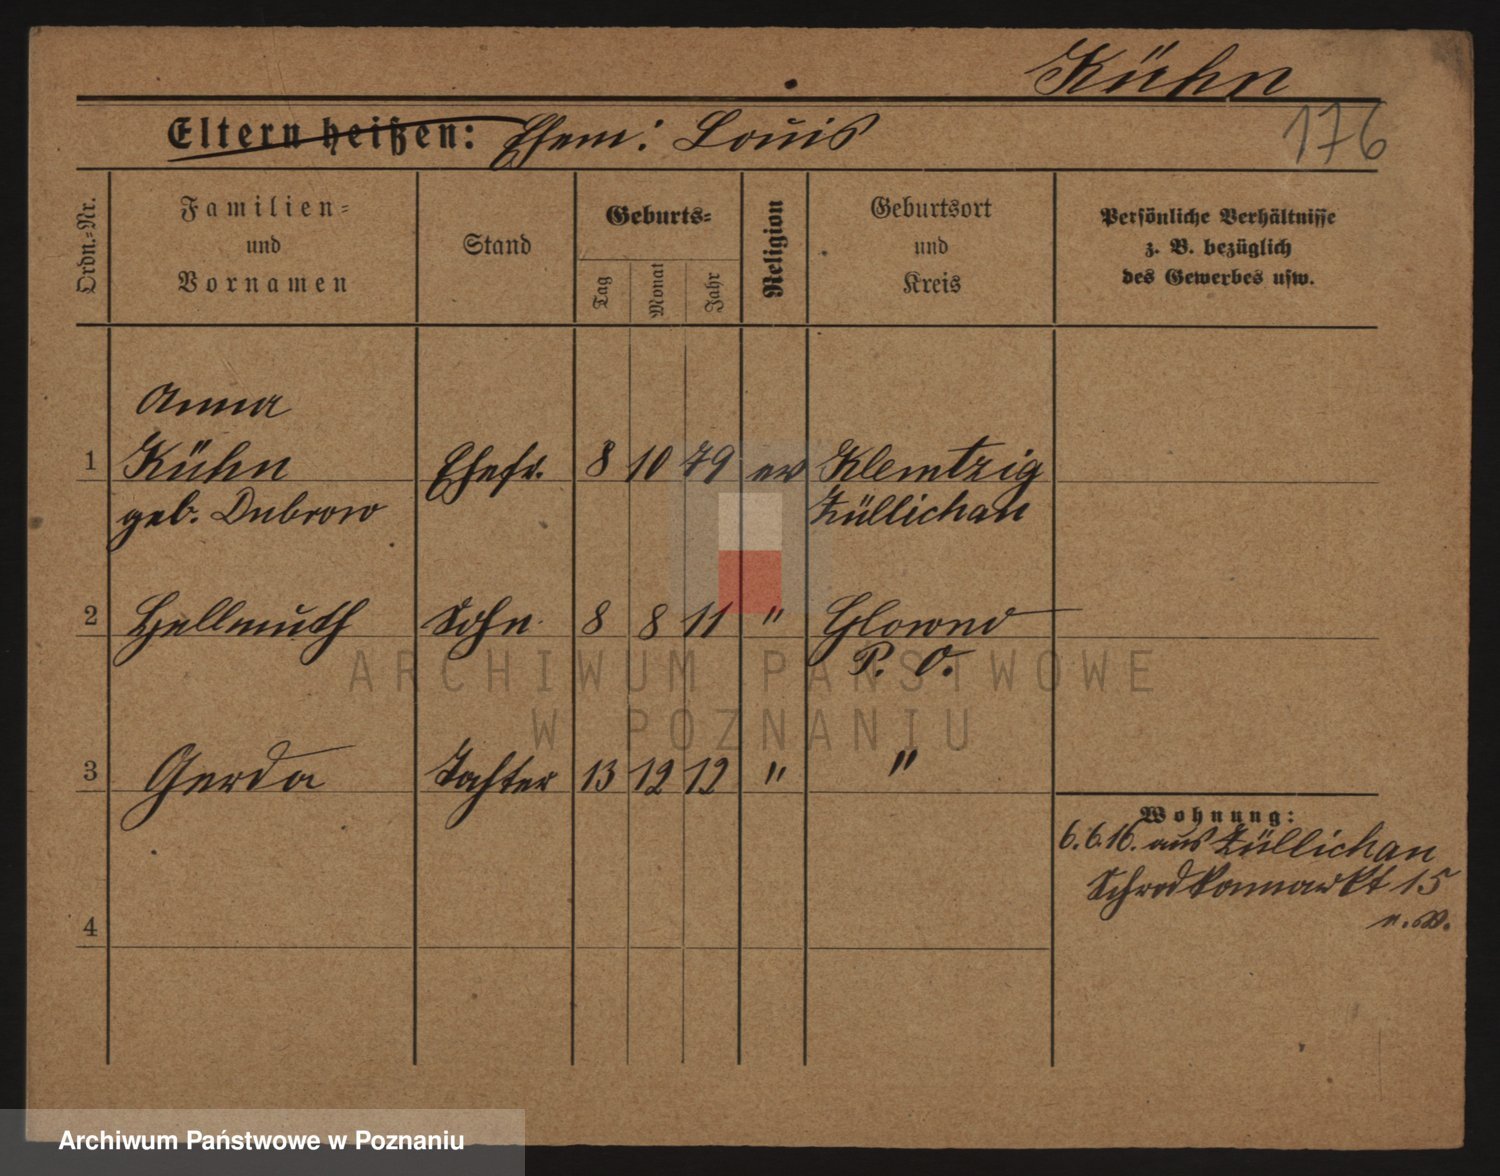 Kühn
176
Eltern heißen: Ehem: Louis
Ordn.-Nr.
Familien- und Vornamen
Stand
Geburts-
Tag
Monat
Jahr
Religion
Geburtsort und Kreis
Persönliche Verhältnisse
z. B. bezüglich
des Gewerbes usw.
Anna
1 Kühn Ehefr. 8 10 79 ev Klemtzig
geb. Dubrow Züllichau
2 Hellmuth Sohn 8 8 11 "
P. O.
3 Gerda Tochter 13 12 12 " "
Wohnung:
6.6.16. aus Züllichau
15
4
ARCHIWUM PAŃSTWOWE
W POZNANIU
Archiwum Państwowe w Poznaniu